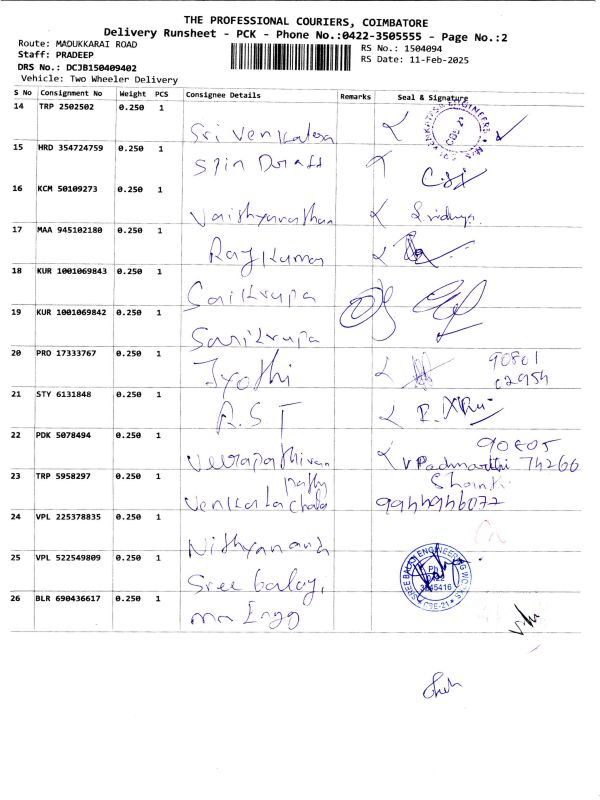 THE PROFESSIONAL COURIERS, COIMBATORE
Delivery Runsheet - PCK - Phone No.:0422-3505555 - Page No.:2
Route: MADUKKARAI ROAD
RS No.: 1504094
Staff: PRADEEP
RS Date: 11-Feb-2025
DRS No.: DCJB150409402
Vehicle: Two Wheeler Delivery
S No Consignment No Weight PCS Consignee Details Remarks Seal & Signature
14 TRP 2502502 0.250 1 Sri Venkatesa
15 HRD 354724759 0.250 1 Spin
16 KCM 50109273 0.250 1 Vaithyanathan
17 MAA 945102180 0.250 1 Raj Kumar
18 KUR 1001069843 0.250 1 Sai Krupa
19 KUR 1001069842 0.250 1 Sai Krupa
20 PRO 17333767 0.250 1 Jyothi 90801
02954
21 STY 6131848 0.250 1 A.S.T
22 PDK 5078494 0.250 1 90805
V Padmavathi 74266
23 TRP 5958297 0.250 1 Venkatachala pathy Shanthi
24 VPL 225378835 0.250 1 Nithyanand
25 VPL 522549809 0.250 1 Sree balaji
SREE BALAJI ENGINEERING WORKS
CBE-21
26 BLR 690436617 0.250 1 mn Engg